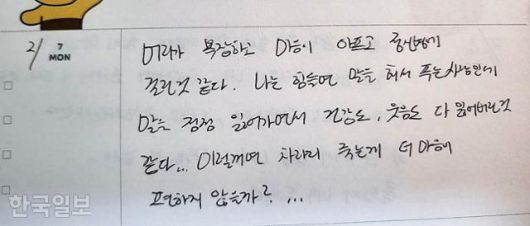 2/7
MON
머리가 복잡하고 마음이 아프고 중압감에
걸린것 같다. 나는 힘들면 말을 해서 푸는사람인데
말을 점점 잃어가면서 건강도, 웃음도 다 잃어버린것
같다... 이럴꺼면 차라리 죽는게 더 마음이
편하지 않을까?...
한국일보